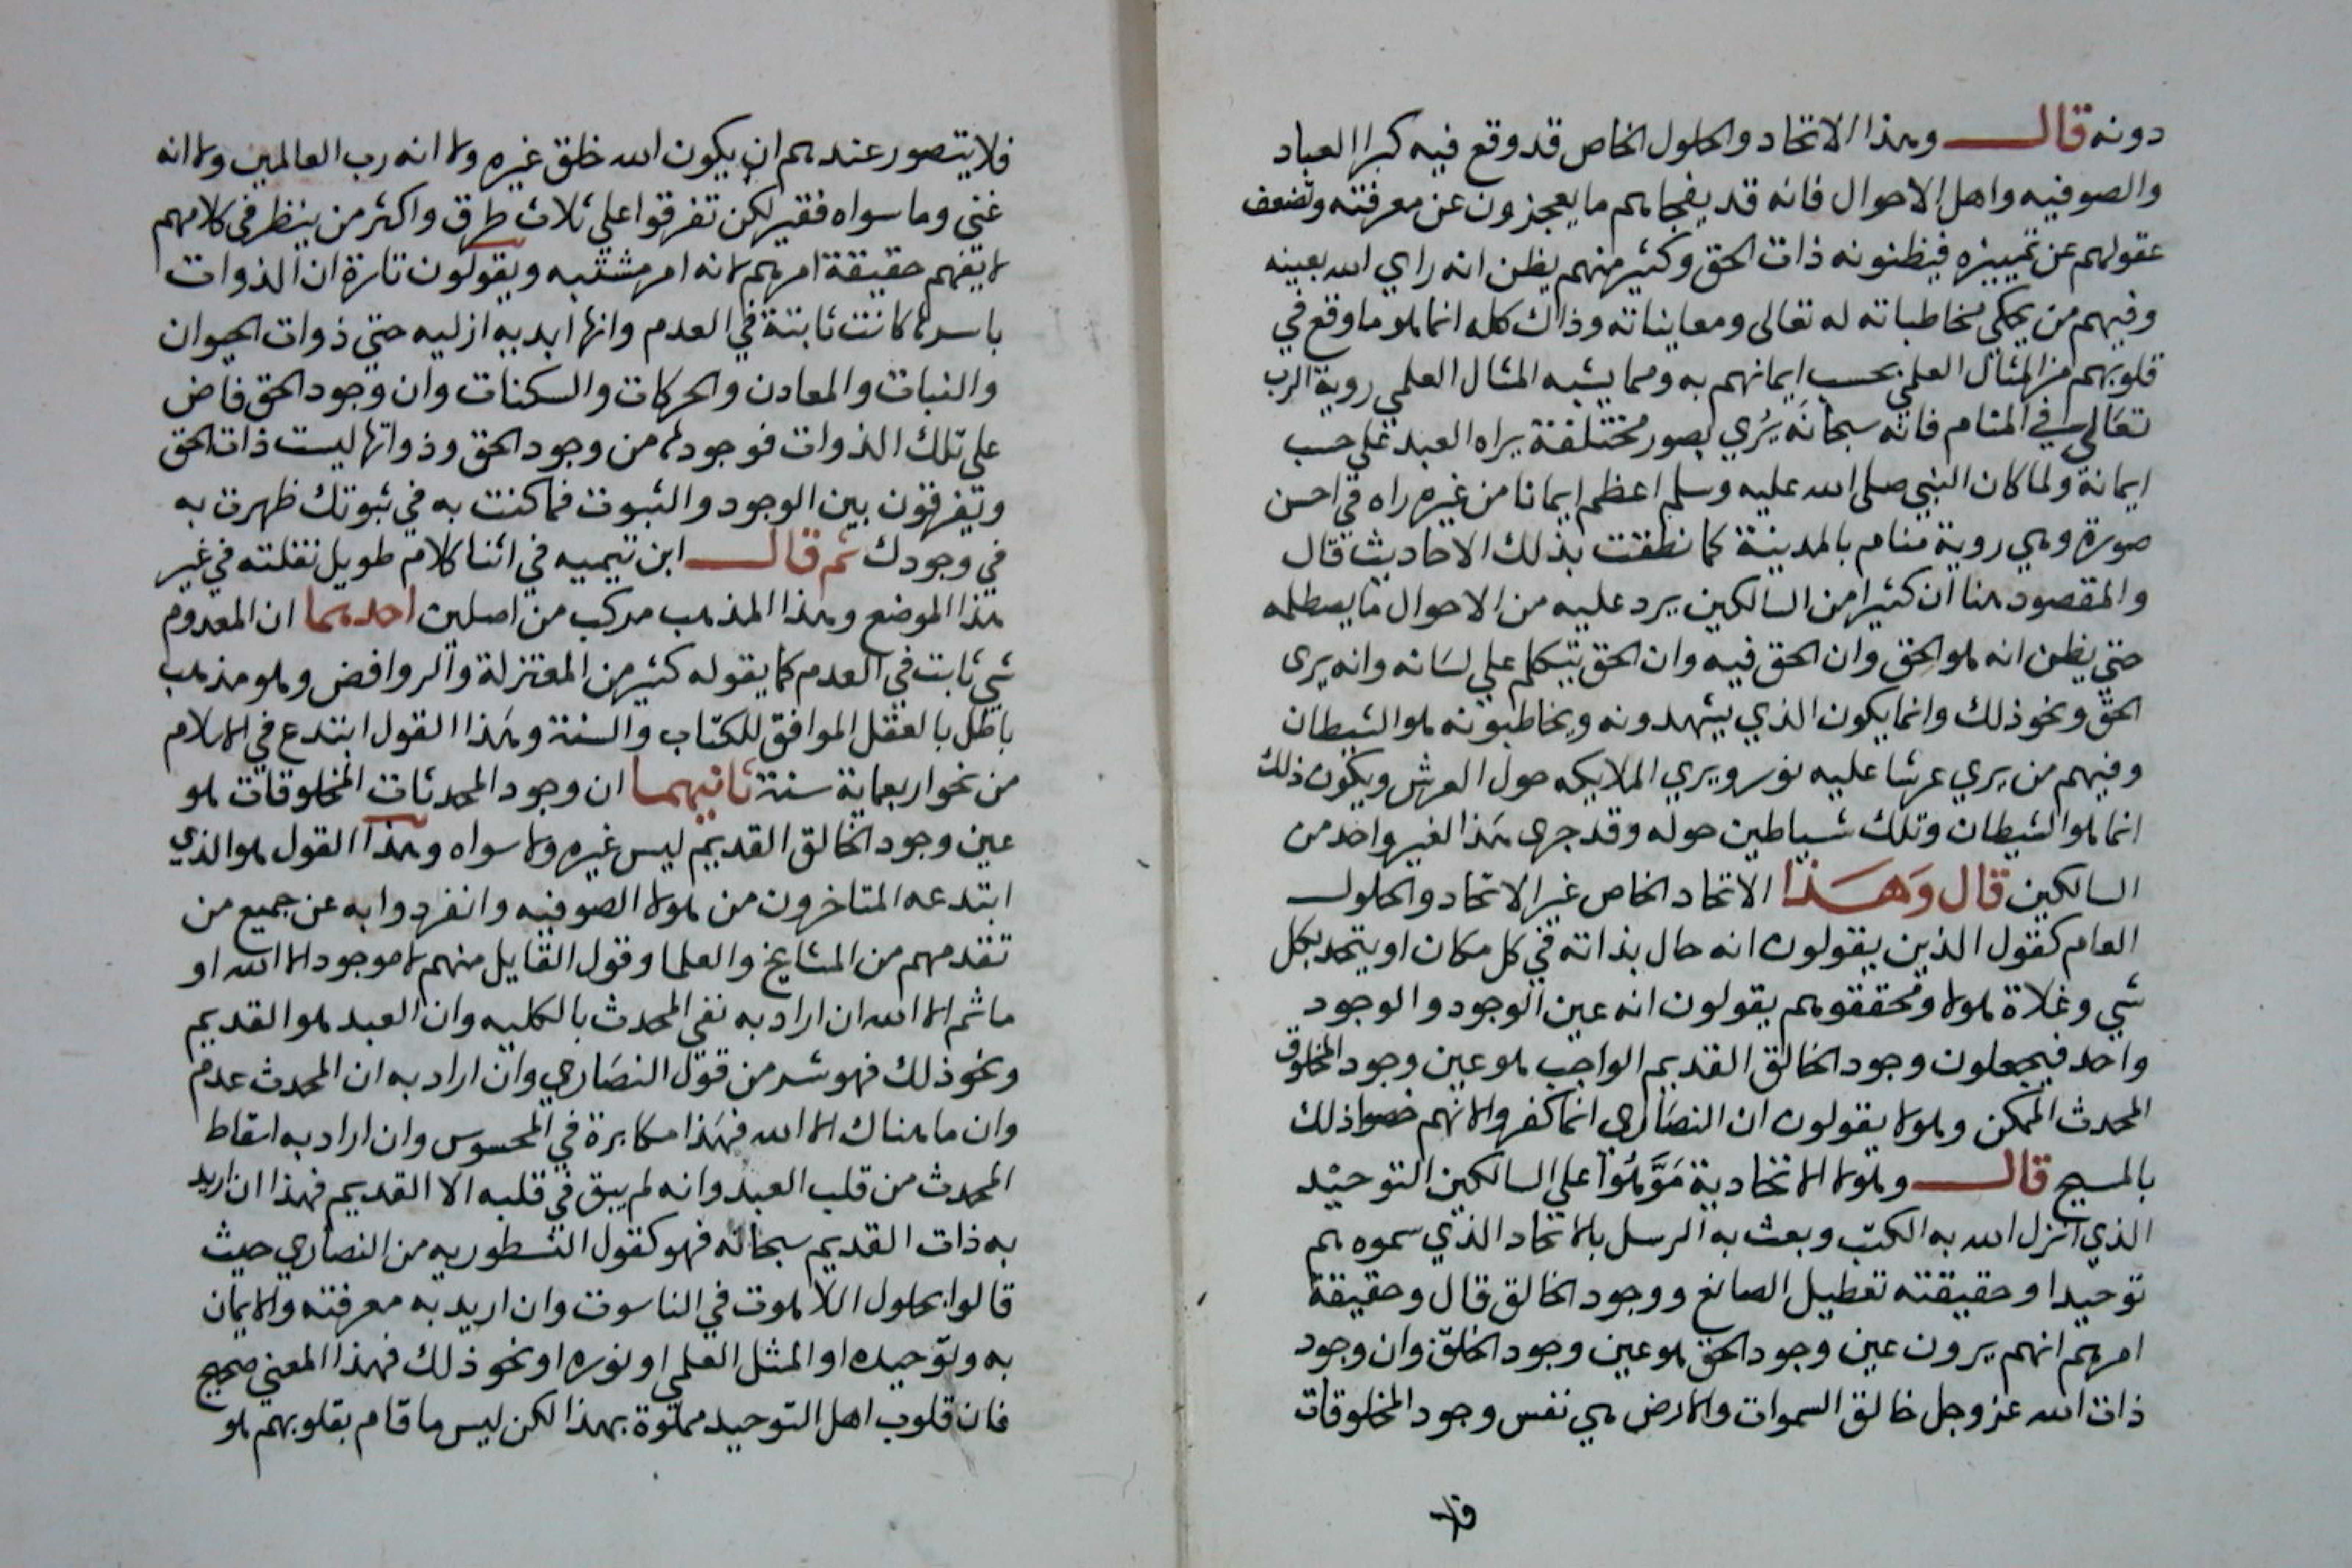 دونه قال وهذا الاتحاد والحلول الخاص قد وقع فيه كبرا العباد
والصوفيه واهل الاحوال فانه قد يفجاهم ما يعجزون عن معرفته وتضعف
عقولهم عن تمييزه فيظنونه ذات الحق وكثير منهم يظن انه راي الله بعينه
وفيهم من يحكي مخاطباته له تعالى ومعايناته وذاك كله انما هو ما وقع في
قلوبهم من المثال العلمي بحسب ايمانهم به ومما يشبه المثال العلمي روية الرب
تعالى في المنام فانه سبحانه يري بصور مختلفة يراه العبد علي حسب
ايمانه ولما كان النبي صلى الله عليه وسلم اعظم ايمانا من غيره راه في احسن
صورة وهي روية منام بالمدينة كما نطقت بذلك الاحاديث قال
والمقصود هنا ان كثيرا من السالكين يرد عليه من الاحوال ما يصطلمه
حتي يظن انه هو الحق وان الحق فيه وان الحق يتكلم علي لسانه وانه يرى
الحق ونحو ذلك وانما يكون الذي يشهدونه ويخاطبونه هو الشيطان
وفيهم من يري عرشا عليه نور ويري الملايكه حول العرش ويكون ذلك
انما هو الشيطان وتلك شياطين حوله وقد جرى هذا لغير واحد من
السالكين قال وهذا الاتحاد الخاص غير الاتحاد والحلول
العام كقول الذين يقولون انه حال بذاته في كل مكان او يتحد بكل
شي وغلاة هولا ومحققوهم يقولون انه عين الوجود والوجود
واحد فيجعلون وجود الخالق القديم الواجب هو عين وجود المخلوق
المحدث الممكن وهولا يقولون ان النصاري انما كفروا لانهم خصوا ذلك
بالمسيح قال وهولا الاتحادية موهوا علي السالكين التوحيد
الذي انزل الله به الكتب وبعث به الرسل بالاتحاد الذي سموه هم
توحيدا وحقيقته تعطيل الصانع ووجود الخالق قال وحقيقة
امرهم انهم يرون عين وجود الحق هو عين وجود الخلق وان وجود
ذات الله عز وجل خالق السموات والارض هي نفس وجود المخلوقات
فلا
فلا يتصور عندهم ان يكون الله خلق غيره ولا انه رب العالمين ولا انه
غني وما سواه فقير لكن تفرقوا على ثلاث طرق واكثر من ينظر في كلامهم
لا يفهم حقيقة امرهم لانه امر مشتبه ويقولون تارة ان الذوات
باسرها كانت ثابتة في العدم وانها ابديه ازليه حتي ذوات الحيوان
والنبات والمعادن والحركات والسكنات وان وجود الحق فاض
على تلك الذوات فوجودها من وجود الحق وذواتها ليست ذات الحق
ويفرقون بين الوجود والثبوت فما كنت به في ثبوتك ظهرت به
في وجودك ثم قال ابن تيميه في اثنا كلام طويل نقلته في غير
هذا الموضع وهذا المذهب مركب من اصلين احدهما ان المعدوم
شي ثابت في العدم كما يقوله كثير من المعتزلة والروافض وهو مذهب
باطل بالعقل الموافق للكتاب والسنة وهذا القول ابتدع في الاسلام
من نحو اربعماية سنة ثانيهما ان وجود المحدثات المخلوقات هو
عين وجود الخالق القديم ليس غيره ولا سواه وهذا القول هو الذي
ابتدعه المتاخرون من هولا الصوفيه وانفردوا به عن جميع من
تقدمهم من المشايخ والعلما وقول القايل منهم لا موجود الا الله او
ما ثم الا الله ان اراد به نفي المحدث بالكليه وان العبد هو القديم
ونحو ذلك فهو شر من قول النصاري وان اراد به ان المحدث عدم
وان ما هناك الا الله فهذا مكابرة في المحسوس وان اراد به اسقاط
المحدث من قلب العبد وانه لم يبق في قلبه الا القديم فهذا ان اريد
به ذات القديم سبحانه فهو كقول النسطوريه من النصاري حيث
قالوا بحلول اللاهوت في الناسوت وان اريد به معرفته والايمان
به وتوحيده او المثل العلمي او نوره او نحو ذلك فهذا المعني صحيح
فان قلوب اهل التوحيد مملوة بهذا لكن ليس ما قام بقلوبهم هو